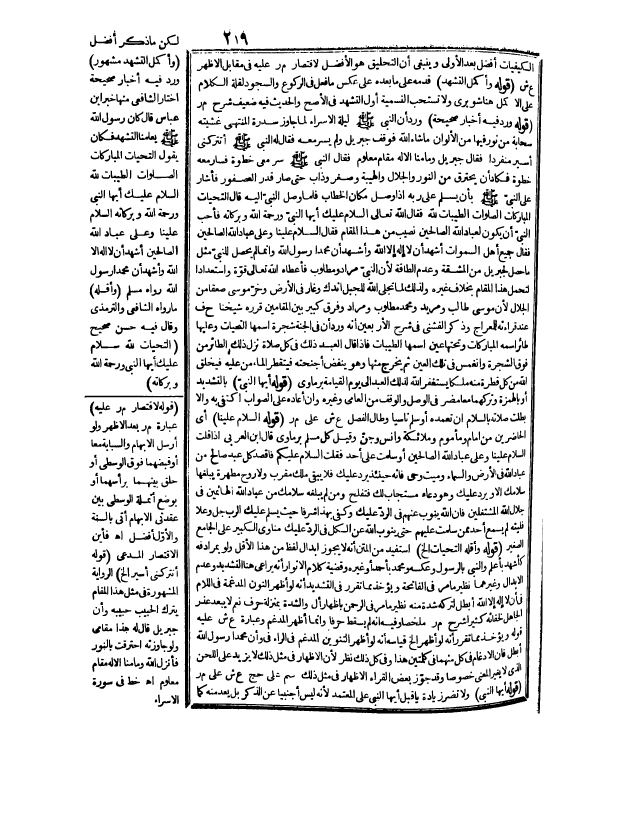 ٢١٩
الكيفيات أفضل بعد الأولى وينبغي أن التحليق هو الأفضل لاقتصار مر عليه في مقابل الاظهر
ع ش (قوله وأكمل التشهد) قدمه على ما بعده على عكس ما فعل في الركوع والسجود لقلة الكلام
على الاكمل هنا شوبرى ولا تستحب التسمية أول التشهد في الأصح والحديث فيه ضعيف شرح مر
(قوله ورد فيه أخبار صحيحة) ورد أن النبي ﷺ ليلة الاسراء لما جاوز سدرة المنتهى غشيته
سحابة من نور فيها من الألوان ما شاء الله فوقف جبريل ولم يسر معه فقال له النبي ﷺ أتتركني
أسير منفردا فقال جبريل وما منا الا له مقام معلوم فقال النبي ﷺ سر معي خطوة فسار معه
خطوة فكاد أن يحترق من النور والجلال والهيبة وصغر وذاب حتى صار قدر العصفور فأشار
على النبي ﷺ بأن يسلم على ربه اذا وصل مكان الخطاب فلما وصل النبي اليه قال التحيات
المباركات الصلوات الطيبات لله فقال الله تعالى السلام عليك أيها النبي ورحمة الله وبركاته فأحب
النبي أن يكون لعباد الله الصالحين نصيب من هذا المقام فقال السلام علينا وعلى عباد الله الصالحين
فقال جميع أهل السموات أشهد أن لا إله إلا الله وأشهد أن محمدا رسول الله وانما لم يحصل للنبي مثل
ما حصل لجبريل من المشقة وعدم الطاقة لأن النبي مراد ومطلوب فأعطاه الله تعالى قوة واستعدادا
لتحمل هذا المقام بخلاف غيره ولذلك لما تجلى الله للجبل اندك وغار في الأرض وخر موسى صعقا من
الجلال لأن موسى طالب ومريد ومحمد مطلوب ومراد وفرق كبير بين المقامين قرره شيخنا حف
عند قراءته للمعراج وذكر الفشني في شرح الأربعين أنه ورد أن في الجنة شجرة اسمها التحيات وعليها
طائر اسمه المباركات وتحتها عين اسمها الطيبات فاذا قال العبد ذلك في كل صلاة نزل ذلك الطائر من
فوق الشجرة وانغمس في تلك العين ثم يخرج منها وهو ينفض أجنحته فيتقطر الماء من عليه فيخلق
الله من كل قطرة منه ملكا يستغفر الله لذلك العبد الى يوم القيامة برماوى (قوله أيها النبي) بالتشديد
أو بالهمزة وتركهما معا مضر في الوصل والوقف من العامي وغيره وان أعاده على الصواب اكتفى به والا
بطلت صلاته بالسلام ان تعمده أو سلم ناسيا وطال الفصل ع ش على مر (قوله السلام علينا) أي
الحاضرين من امام ومأموم وملائكة وانس وجن وقيل كل مسلم برماوى قال ابن العربي اذا قلت
السلام علينا وعلى عباد الله الصالحين أو سلمت على أحد فقلت السلام عليكم فاقصد كل عبد صالح من
عباد الله في الأرض والسماء وميت وحي فانه حينئذ يرد عليك فلا يبقى ملك مقرب ولا روح مطهرة يبلغها
سلامك الا يرد عليك وهو دعاء مستجاب لك فتفلح ومن لم يبلغه سلامك من عباد الله الهائمين في
جلال الله المشتغلين فان الله ينوب عنهم في الرد عليك وكفى بهذا شرفا حيث يسلم عليك الرب جل وعلا
فليته لم يسمع أحد ممن سلمت عليهم حتى ينوب الله عن الكل في الرد عليك مناوى الكبير على الجامع
الصغير (قوله وأقله التحيات الخ) استفيد من المتن أنه لا يجوز ابدال لفظ من هذا الأقل ولو بمرادفه
كأشهد بأعلم والنبي بالرسول وعكسه ومحمد بأحمد أو غيره وقضية كلام الانوار أنه يراعى هنا التشديد وعدم
الابدال وغيرهما نظير ما مر في الفاتحة ويؤخذ مما تقرر في التشديد أنه لو أظهر النون المدغمة في اللام
في أن لا إله إلا الله أبطل لتركه شدة منه نظير ما مر في الرحمن باظهار أل والشدة بمنزلة حرف نعم لا يبعد عذر
الجاهل لخفائه كثيرا شرح مر ملخصا وفيه أنه لم يسقط حرفا وانما أظهر المدغم وعبارة ع ش عليه
قوله ويؤخذ مما تقرر أنه لو أظهر الخ قياسه أنه لو أظهر التنوين المدغم في الراء في وأن محمدا رسول الله
أبطل فان الادغام في كل منهما في كلمتين هذا وفي كل ذلك نظر لأن الاظهار في مثل ذلك لا يزيد على اللحن
الذي لا يغير المعنى خصوصا وقد جوز بعض القراء الاظهار في مثل ذلك سم على حج ع ش على مر
(قوله أيها النبي) ولا تضر زيادة يا قبل أيها النبي على المعتمد لأنه ليس أجنبيا عن الذكر بل يعد منه كما
لكن ما ذكر أفضل
(وأكمل التشهد مشهور)
ورد فيه أخبار صحيحة
اختار الشافعي منها خبر ابن
عباس قال كان رسول الله
ﷺ يعلمنا التشهد فكان
يقول التحيات المباركات
الصلوات الطيبات لله
السلام عليك أيها النبي
ورحمة الله وبركاته السلام
علينا وعلى عباد الله
الصالحين أشهد أن لا إله إلا
الله وأشهد أن محمدا رسول
الله رواه مسلم (وأقله)
ما رواه الشافعي والترمذي
وقال فيه حسن صحيح
(التحيات لله سلام
عليك أيها النبي ورحمة الله
وبركاته)
(قوله لاقتصار مر عليه)
عبارة مر بعد الاظهر ولو
أرسل الابهام والسبابة معا
أو قبضهما فوق الوسطى أو
حلق بينهما برأسهما أو
بوضع أنملة الوسطى بين
عقدتي الابهام أتى بالسنة
والأول أفضل اه فأين
الاقتصار المدعى (قوله
أتتركني أسير الخ) الرواية
المشهورة في مثل هذا المقام
يترك الحبيب حبيبه وأن
جبريل قال له هذا مقامي
ولو جاوزته احترقت بالنور
فأنزل الله وما منا الا له مقام
معلوم اه خط في سورة
الاسراء.